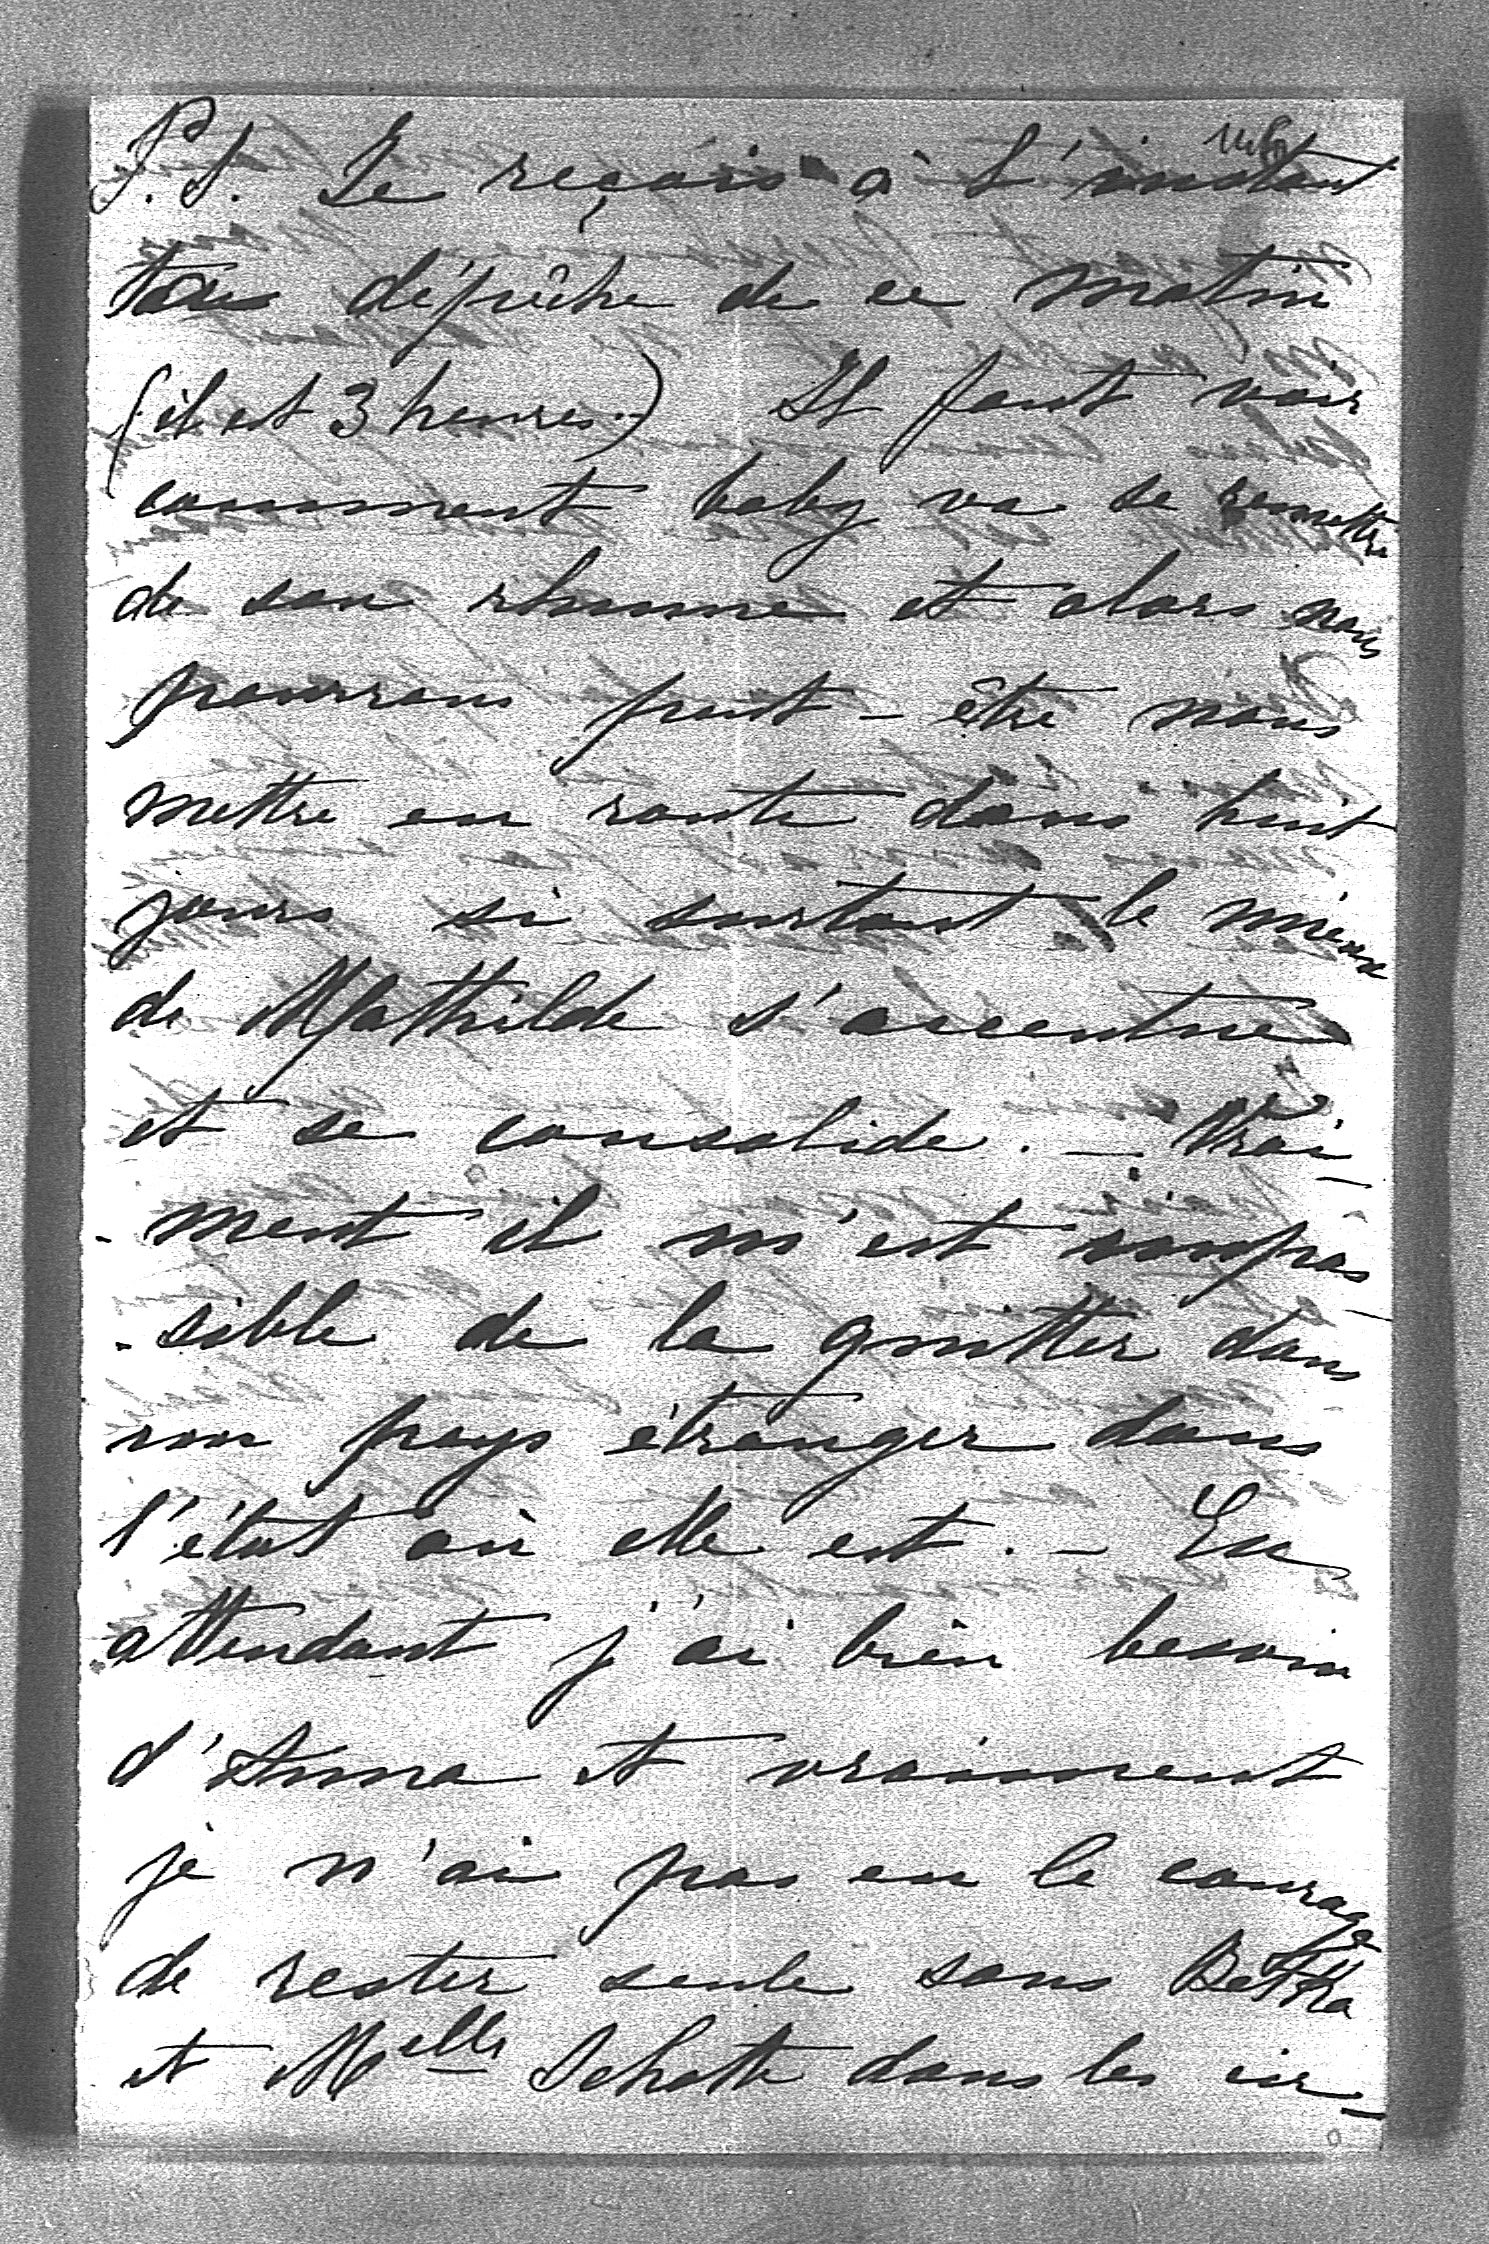 P.S. Je reçois à l'instant
ta dépêche de ce matin
(il est 3 heures.) Il faut voir
comment baby va se remettre
de son rhume et alors nous
pourrons peut-être nous
mettre en route dans huit
jours si surtout le mieux
de Mathilde s'accentue
et se consolide. — Vrai-
-ment il m'est impos-
-sible de la quitter dans
un pays étranger dans
l'état où elle est. — En
attendant j'ai bien besoin
d'Anna et vraiment
je n'ai pas eu le courage
de rester seule sans
et Melle Schott dans les cir-